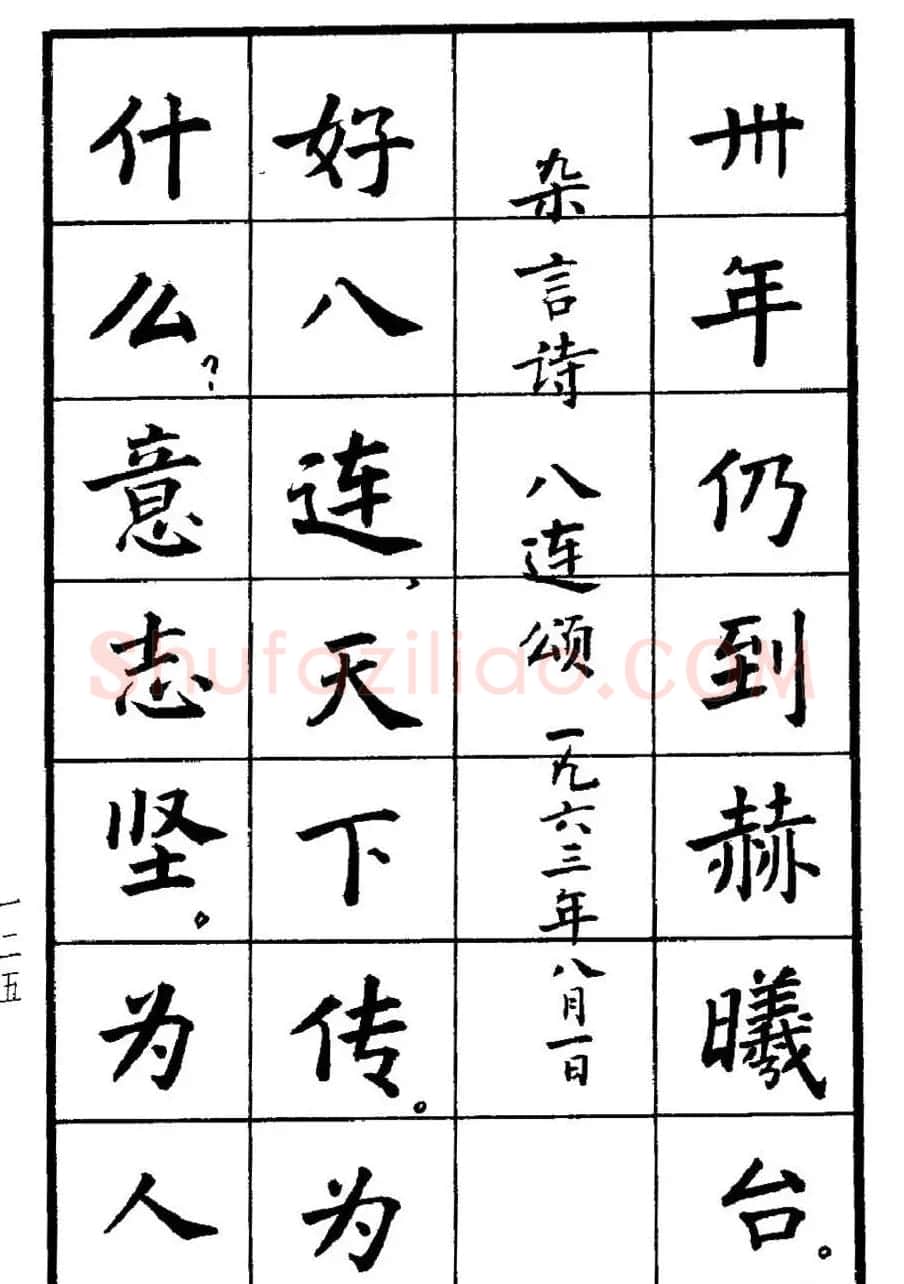 卅年仍到赫曦台。
杂言诗 八连颂 一九六三年八月一日
好八连，天下传。为
什么？意志坚。为人
一二五
Shufaziliao.COM